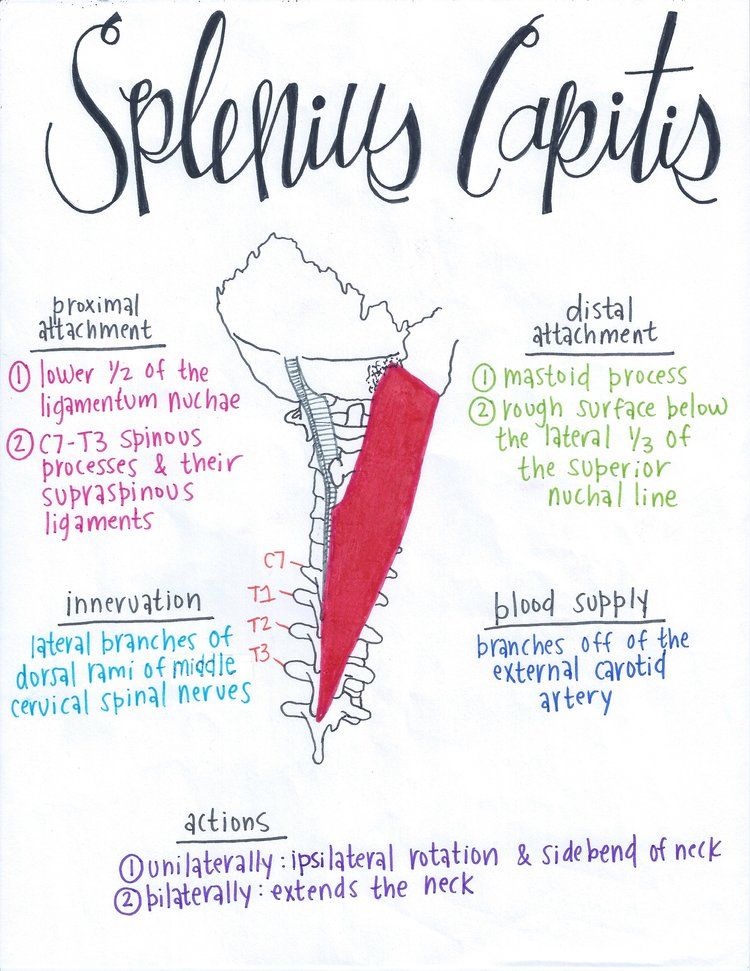 Splenius Capitis
proximal
attachment
① lower 1/2 of the
ligamentum nuchae
② C7-T3 spinous
processes & their
supraspinous
ligaments
distal
attachment
① mastoid process
② rough surface below
the lateral 1/3 of
the superior
nuchal line
C7
T1
T2
T3
innervation
lateral branches of
dorsal rami of middle
cervical spinal nerves
blood supply
branches off of the
external carotid
artery
actions
① unilaterally: ipsilateral rotation & sidebend of neck
② bilaterally: extends the neck